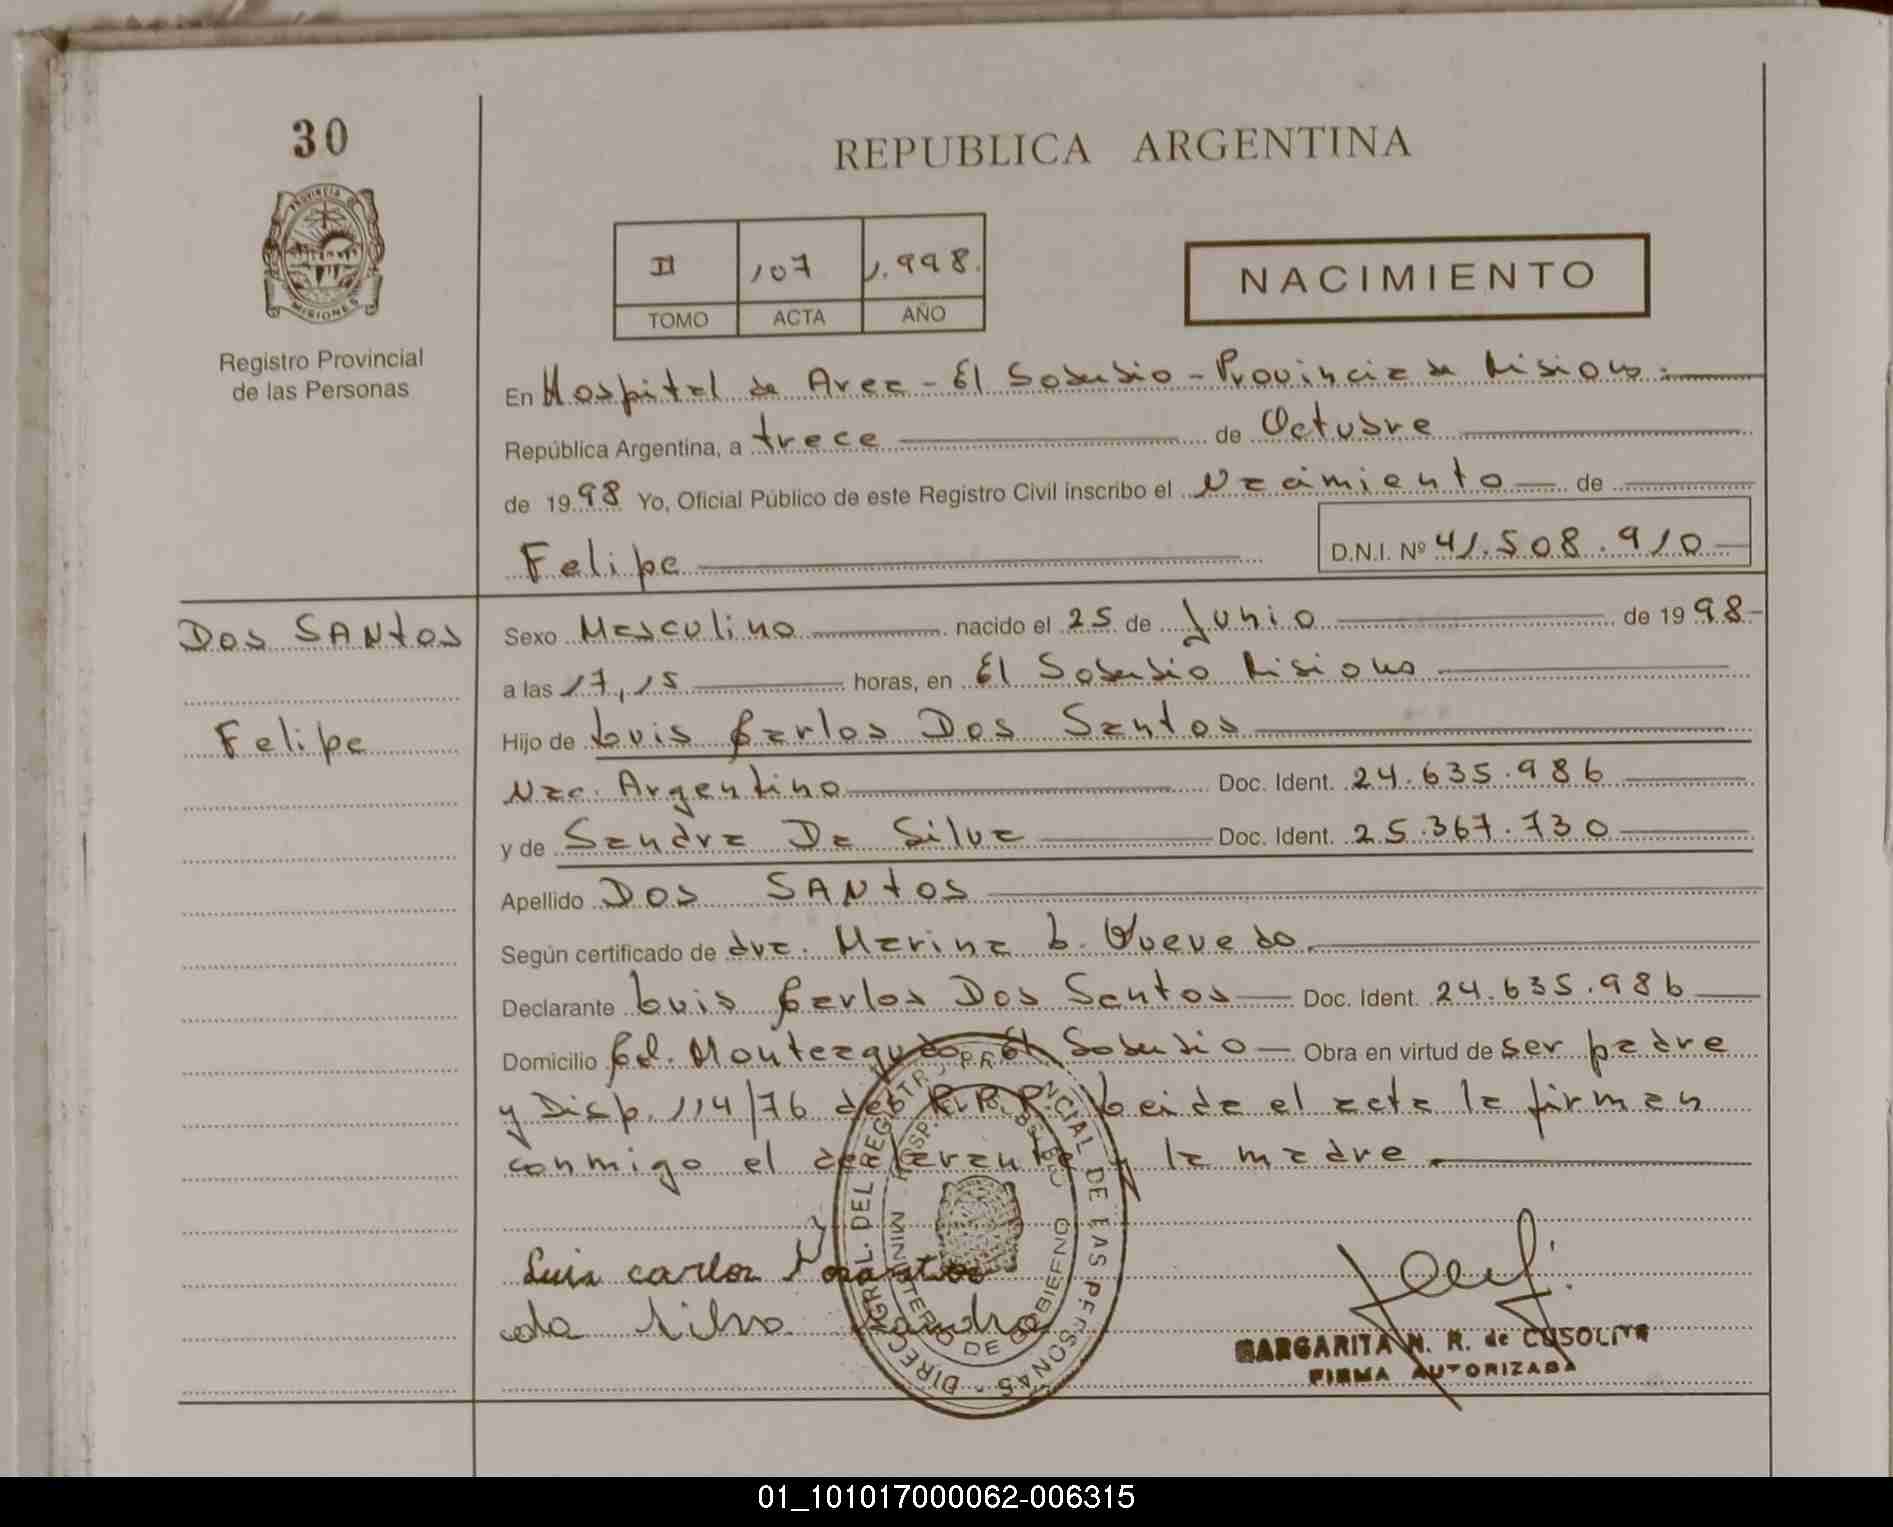 30
REPUBLICA ARGENTINA
PROVINCIA DE
MISIONES
Registro Provincial
de las Personas
II 107 1.998.
TOMO ACTA AÑO
NACIMIENTO
En Hospital de Area - El Soberbio - Provincia de Misiones.
República Argentina, a trece de Octubre
de 1998 Yo, Oficial Público de este Registro Civil inscribo el Nacimiento de
Felipe D.N.I. Nº 41.508.910
Dos SANtos
Felipe
Sexo Masculino nacido el 25 de Junio de 1998
a las 17,15 horas, en El Soberbio Misiones
Hijo de Luis Carlos Dos Santos
Nac. Argentino Doc. Ident. 24.635.986
y de Sandra Da Silva Doc. Ident. 25.367.730
Apellido Dos SANtos
Según certificado de dra. Marina L. Quevedo.
Declarante Luis Carlos Dos Santos Doc. Ident. 24.635.986
Domicilio Cl. Monteagudo El Soberbio Obra en virtud de ser padre
y Disp. 114/76 del R.P.P. Leida el acta la firman
conmigo el declarante y la madre
Luis carlos
da Silva Sandra
DIRECC. GRAL. DEL REGISTRO PROVINCIAL DE LAS PERSONAS
MINISTERIO DE GOBIERNO
MARGARITA N. R. de CUSOLITO
FIRMA AUTORIZADA
01_101017000062-006315